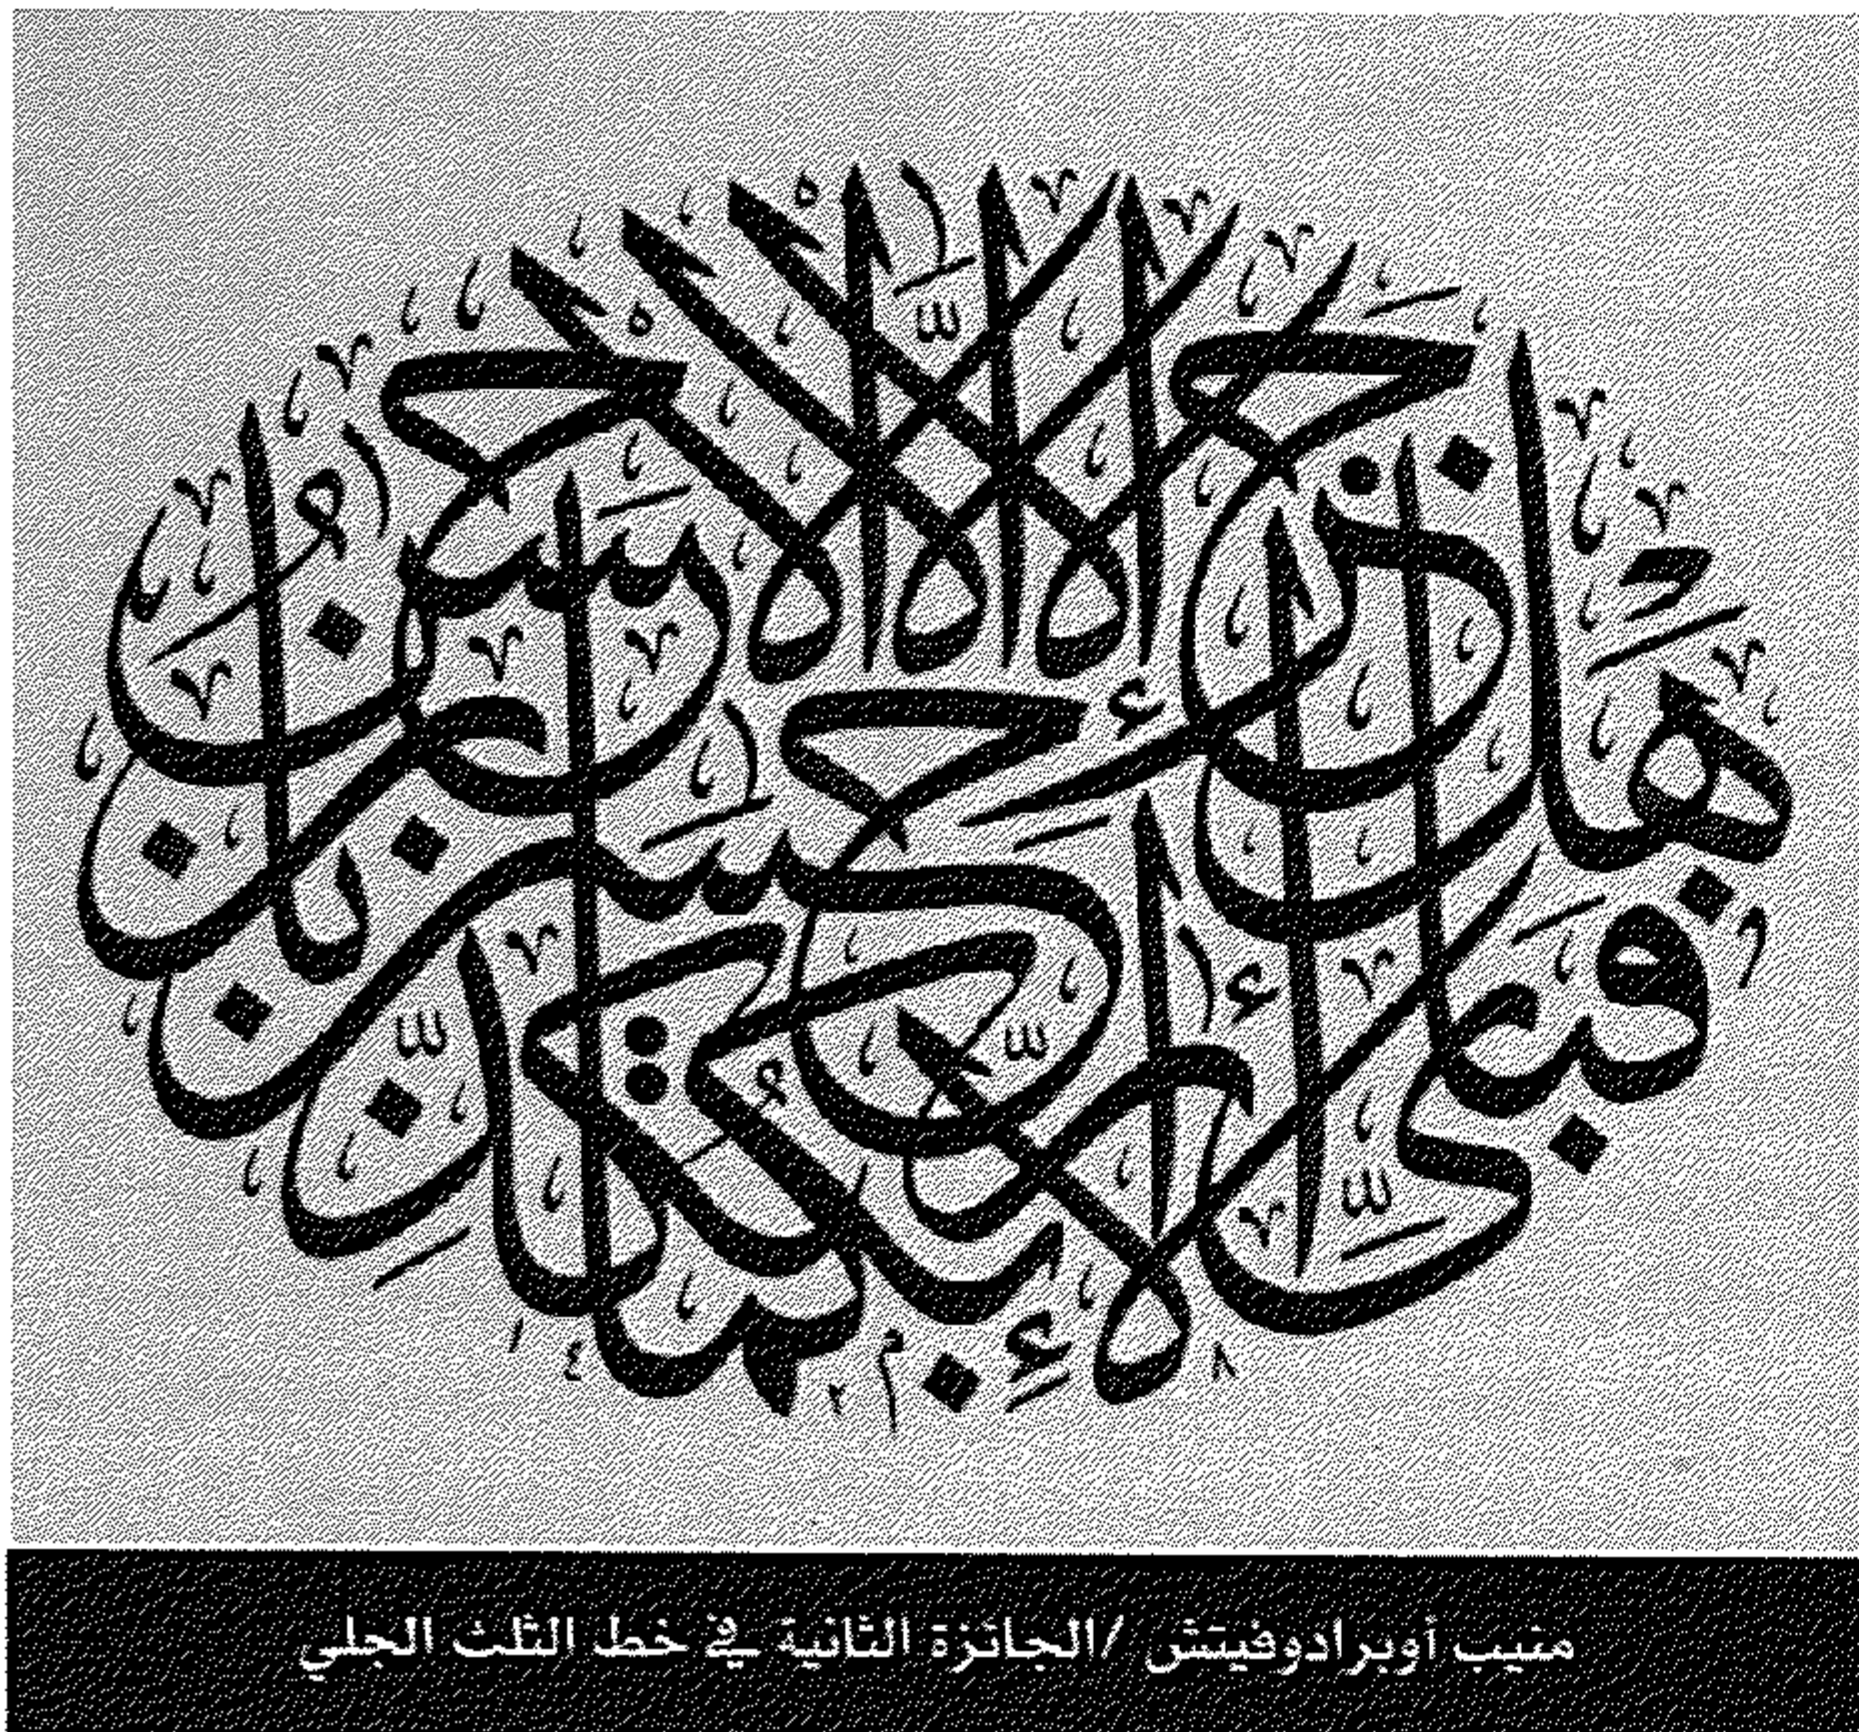 هل جزاء الإحسان إلا الإحسان
فبأي آلاء ربكما تكذبان
١٤٢٨
منيب أوبرادوفيتش /الجائزة الثانية في خط الثلث الجلي